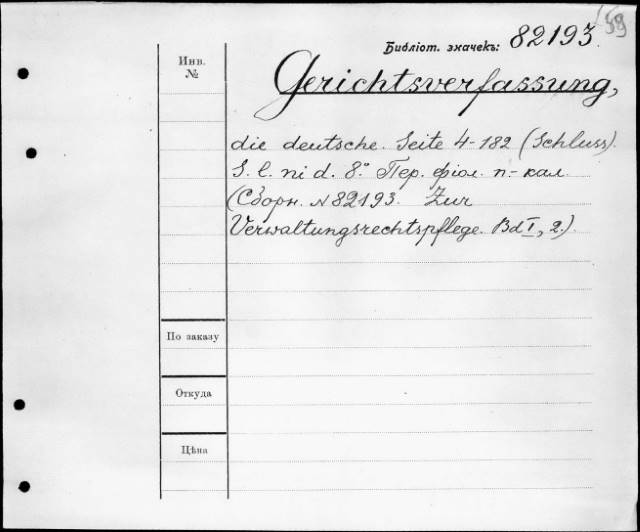 59
Библіот. значекъ: 82193.
Инв.
№
Gerichtsverfassung,
die deutsche. Seite 4-182 (Schluss).
S. l. ni d. 8.° Пер. фіол. п-кал.
(Сборн. N 82193. Zur
Verwaltungsrechtspflege. Bd I, 2.)
По заказу
Откуда
Цѣна